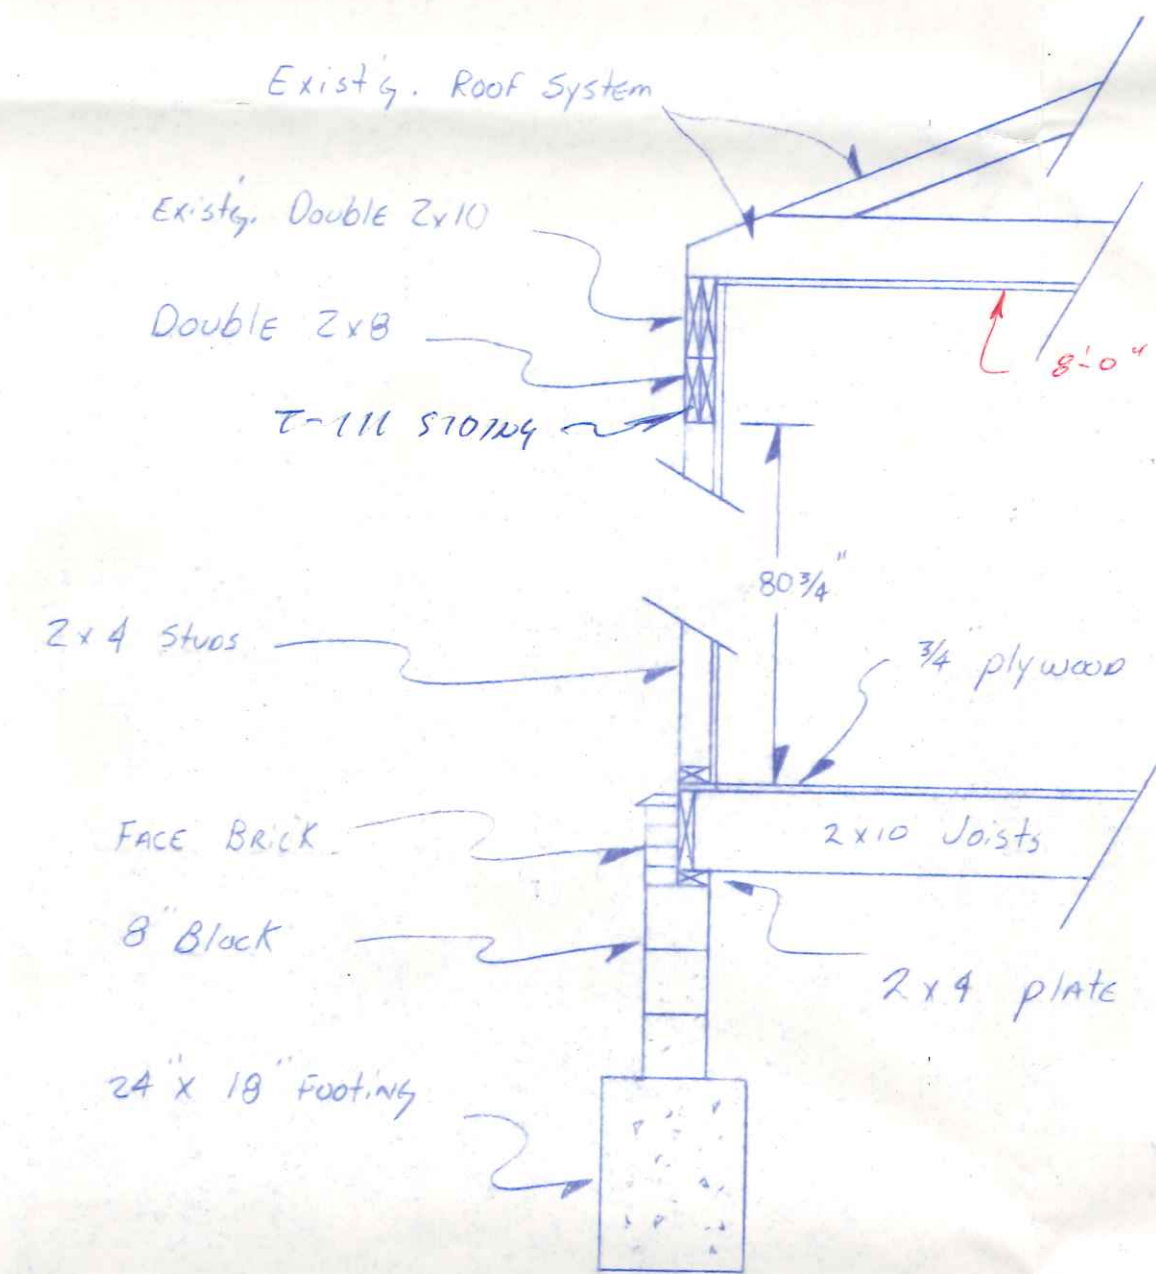 Exist'g. Roof System
Exist'g. Double 2x10
Double 2x8
T-111 SIDING
8'-0"
80 3/4"
2x4 Studs
3/4" plywood
FACE BRICK
2x10 Joists
8" Block
2x4 plATE
24" x 18" Footing